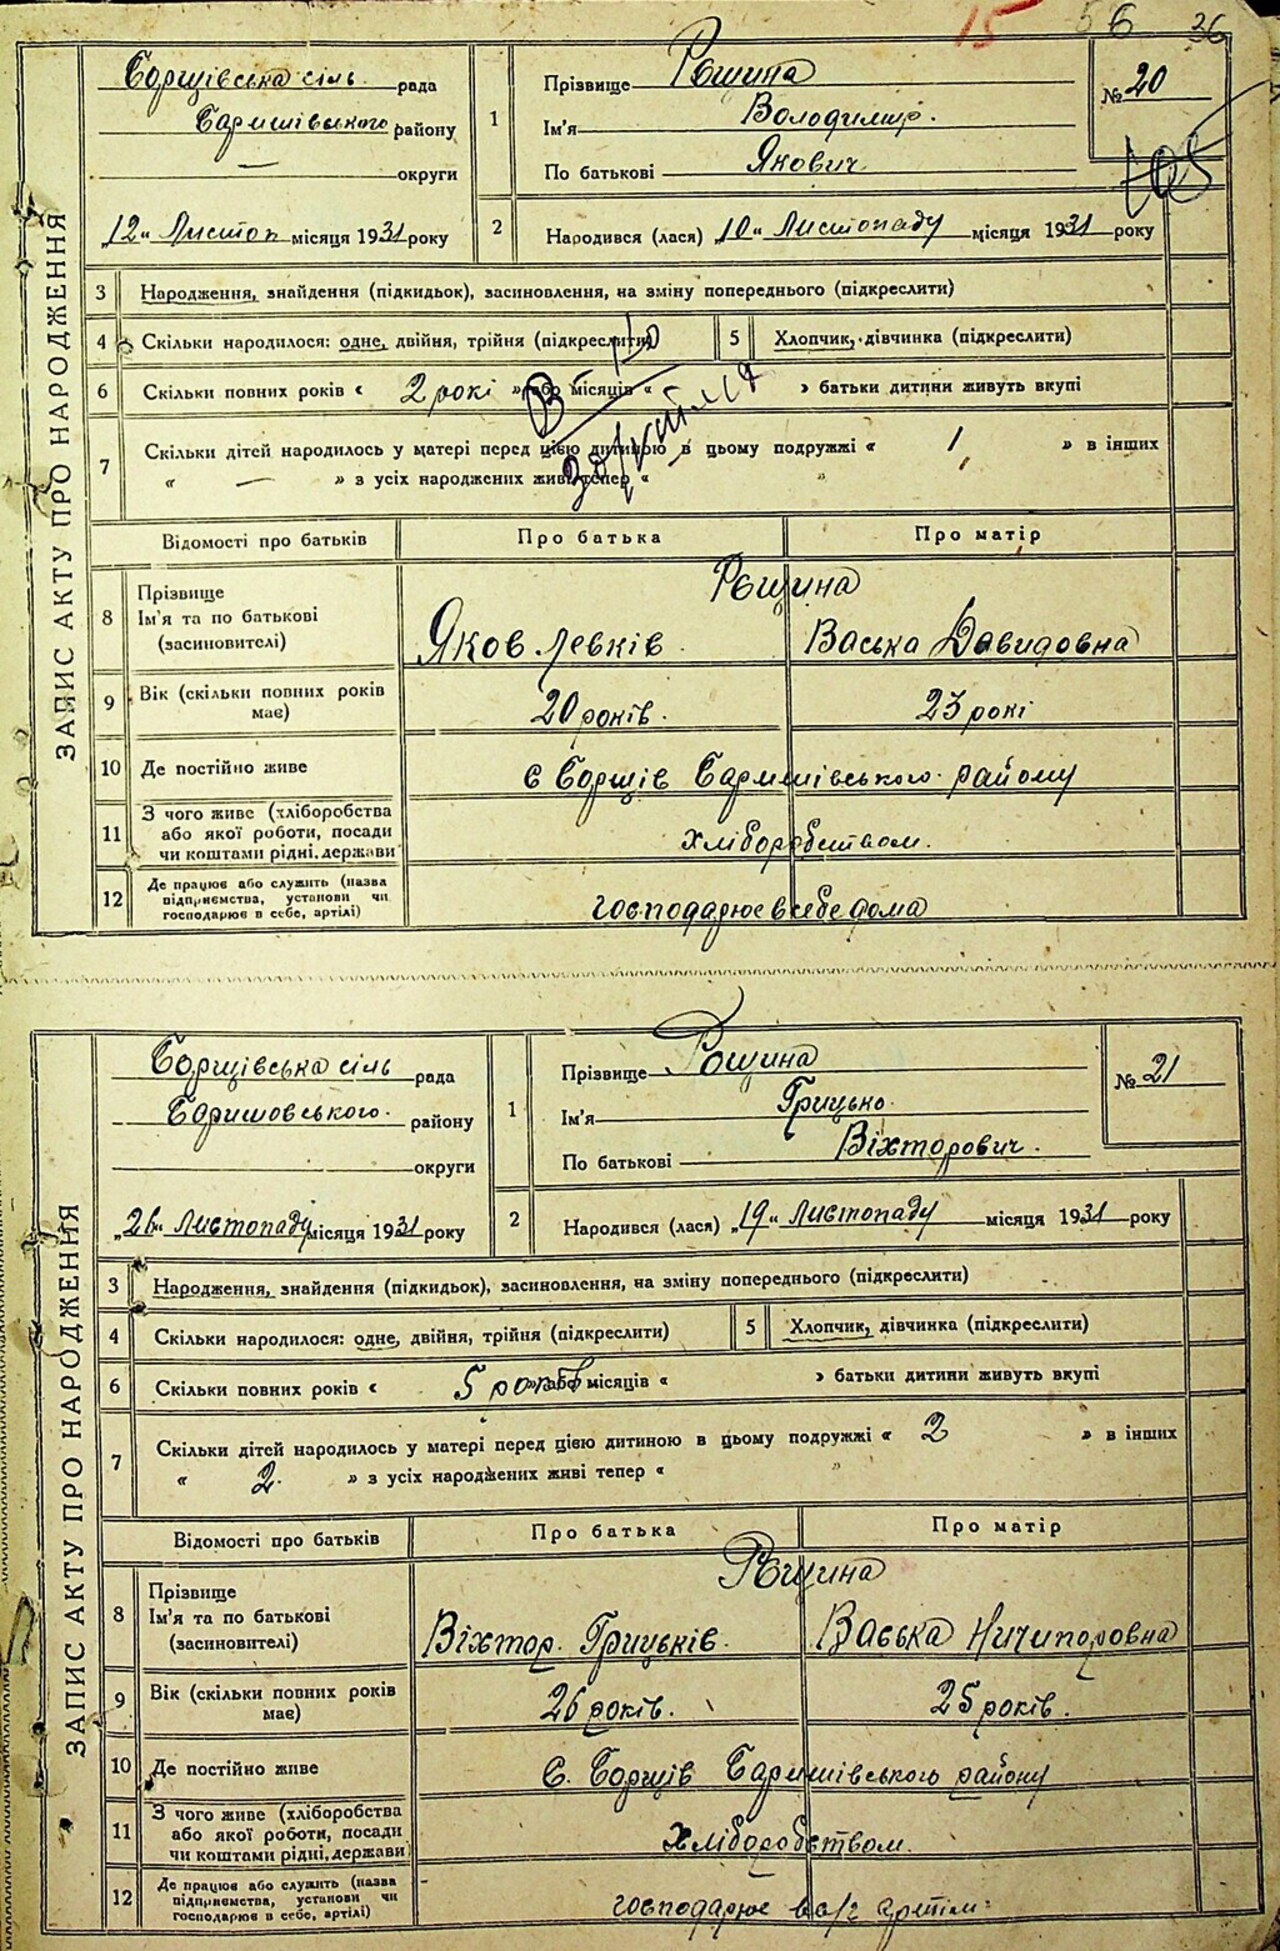 15 56 36
ЗАПИС АКТУ ПРО НАРОДЖЕННЯ
Борщівська сіль рада
Баришівського району
— округи
„12“ Листоп місяця 1931 року
1 Прізвище Рощина
Ім'я Володимир.
По батькові Якович
№ 20
2 Народився (лася) „10“ Листопаду місяця 1931 року
3 Народження, знайдення (підкидьок), засиновлення, на зміну попереднього (підкреслити)
4 Скільки народилося: одне, двійня, трійня (підкреслити) 5 Хлопчик, дівчинка (підкреслити)
6 Скільки повних років « 2 рокі » або місяців « » батьки дитини живуть вкупі
7 Скільки дітей народилось у матері перед цією дитиною в цьому подружжі « 1 » в інших
« — » з усіх народжених живі тепер « »
Відомості про батьків Про батька Про матір
8 Прізвище
Ім'я та по батькові
(засиновителі)
Рощина
Яков Левків. Васька Давидовна
9 Вік (скільки повних років
має)
20 років. 23 рокі
10 Де постійно живе с Борщів Баришівського району
11 З чого живе (хліборобства
або якої роботи, посади
чи коштами рідні, держави
хліборобством.
12 Де працює або служить (назва
підприємства, установи чи
господарює в себе, артілі)
господарює в себе дома
ЗАПИС АКТУ ПРО НАРОДЖЕННЯ
Борщівська сіль рада
Баришовського. району
округи
„26“ Листопаду місяця 1931 року
1 Прізвище Рощина
Ім'я Грицько.
По батькові Віхторович.
№ 21
2 Народився (лася) „19“ Листопаду місяця 1931 року
3 Народження, знайдення (підкидьок), засиновлення, на зміну попереднього (підкреслити)
4 Скільки народилося: одне, двійня, трійня (підкреслити) 5 Хлопчик, дівчинка (підкреслити)
6 Скільки повних років « 5 років » або місяців « » батьки дитини живуть вкупі
7 Скільки дітей народилось у матері перед цією дитиною в цьому подружжі « 2 » в інших
« 2. » з усіх народжених живі тепер « »
Відомості про батьків Про батька Про матір
8 Прізвище
Ім'я та по батькові
(засиновителі)
Рощина
Віхтор. Грицьків. Васька Ничипоровна
9 Вік (скільки повних років
має)
26 років. 25 років.
10 Де постійно живе С. Борщів Баришівського району
11 З чого живе (хліборобства
або якої роботи, посади
чи коштами рідні, держави
Хліборобством.
12 Де працює або служить (назва
підприємства, установи чи
господарює в себе, артілі)
господарює в с/г артіли